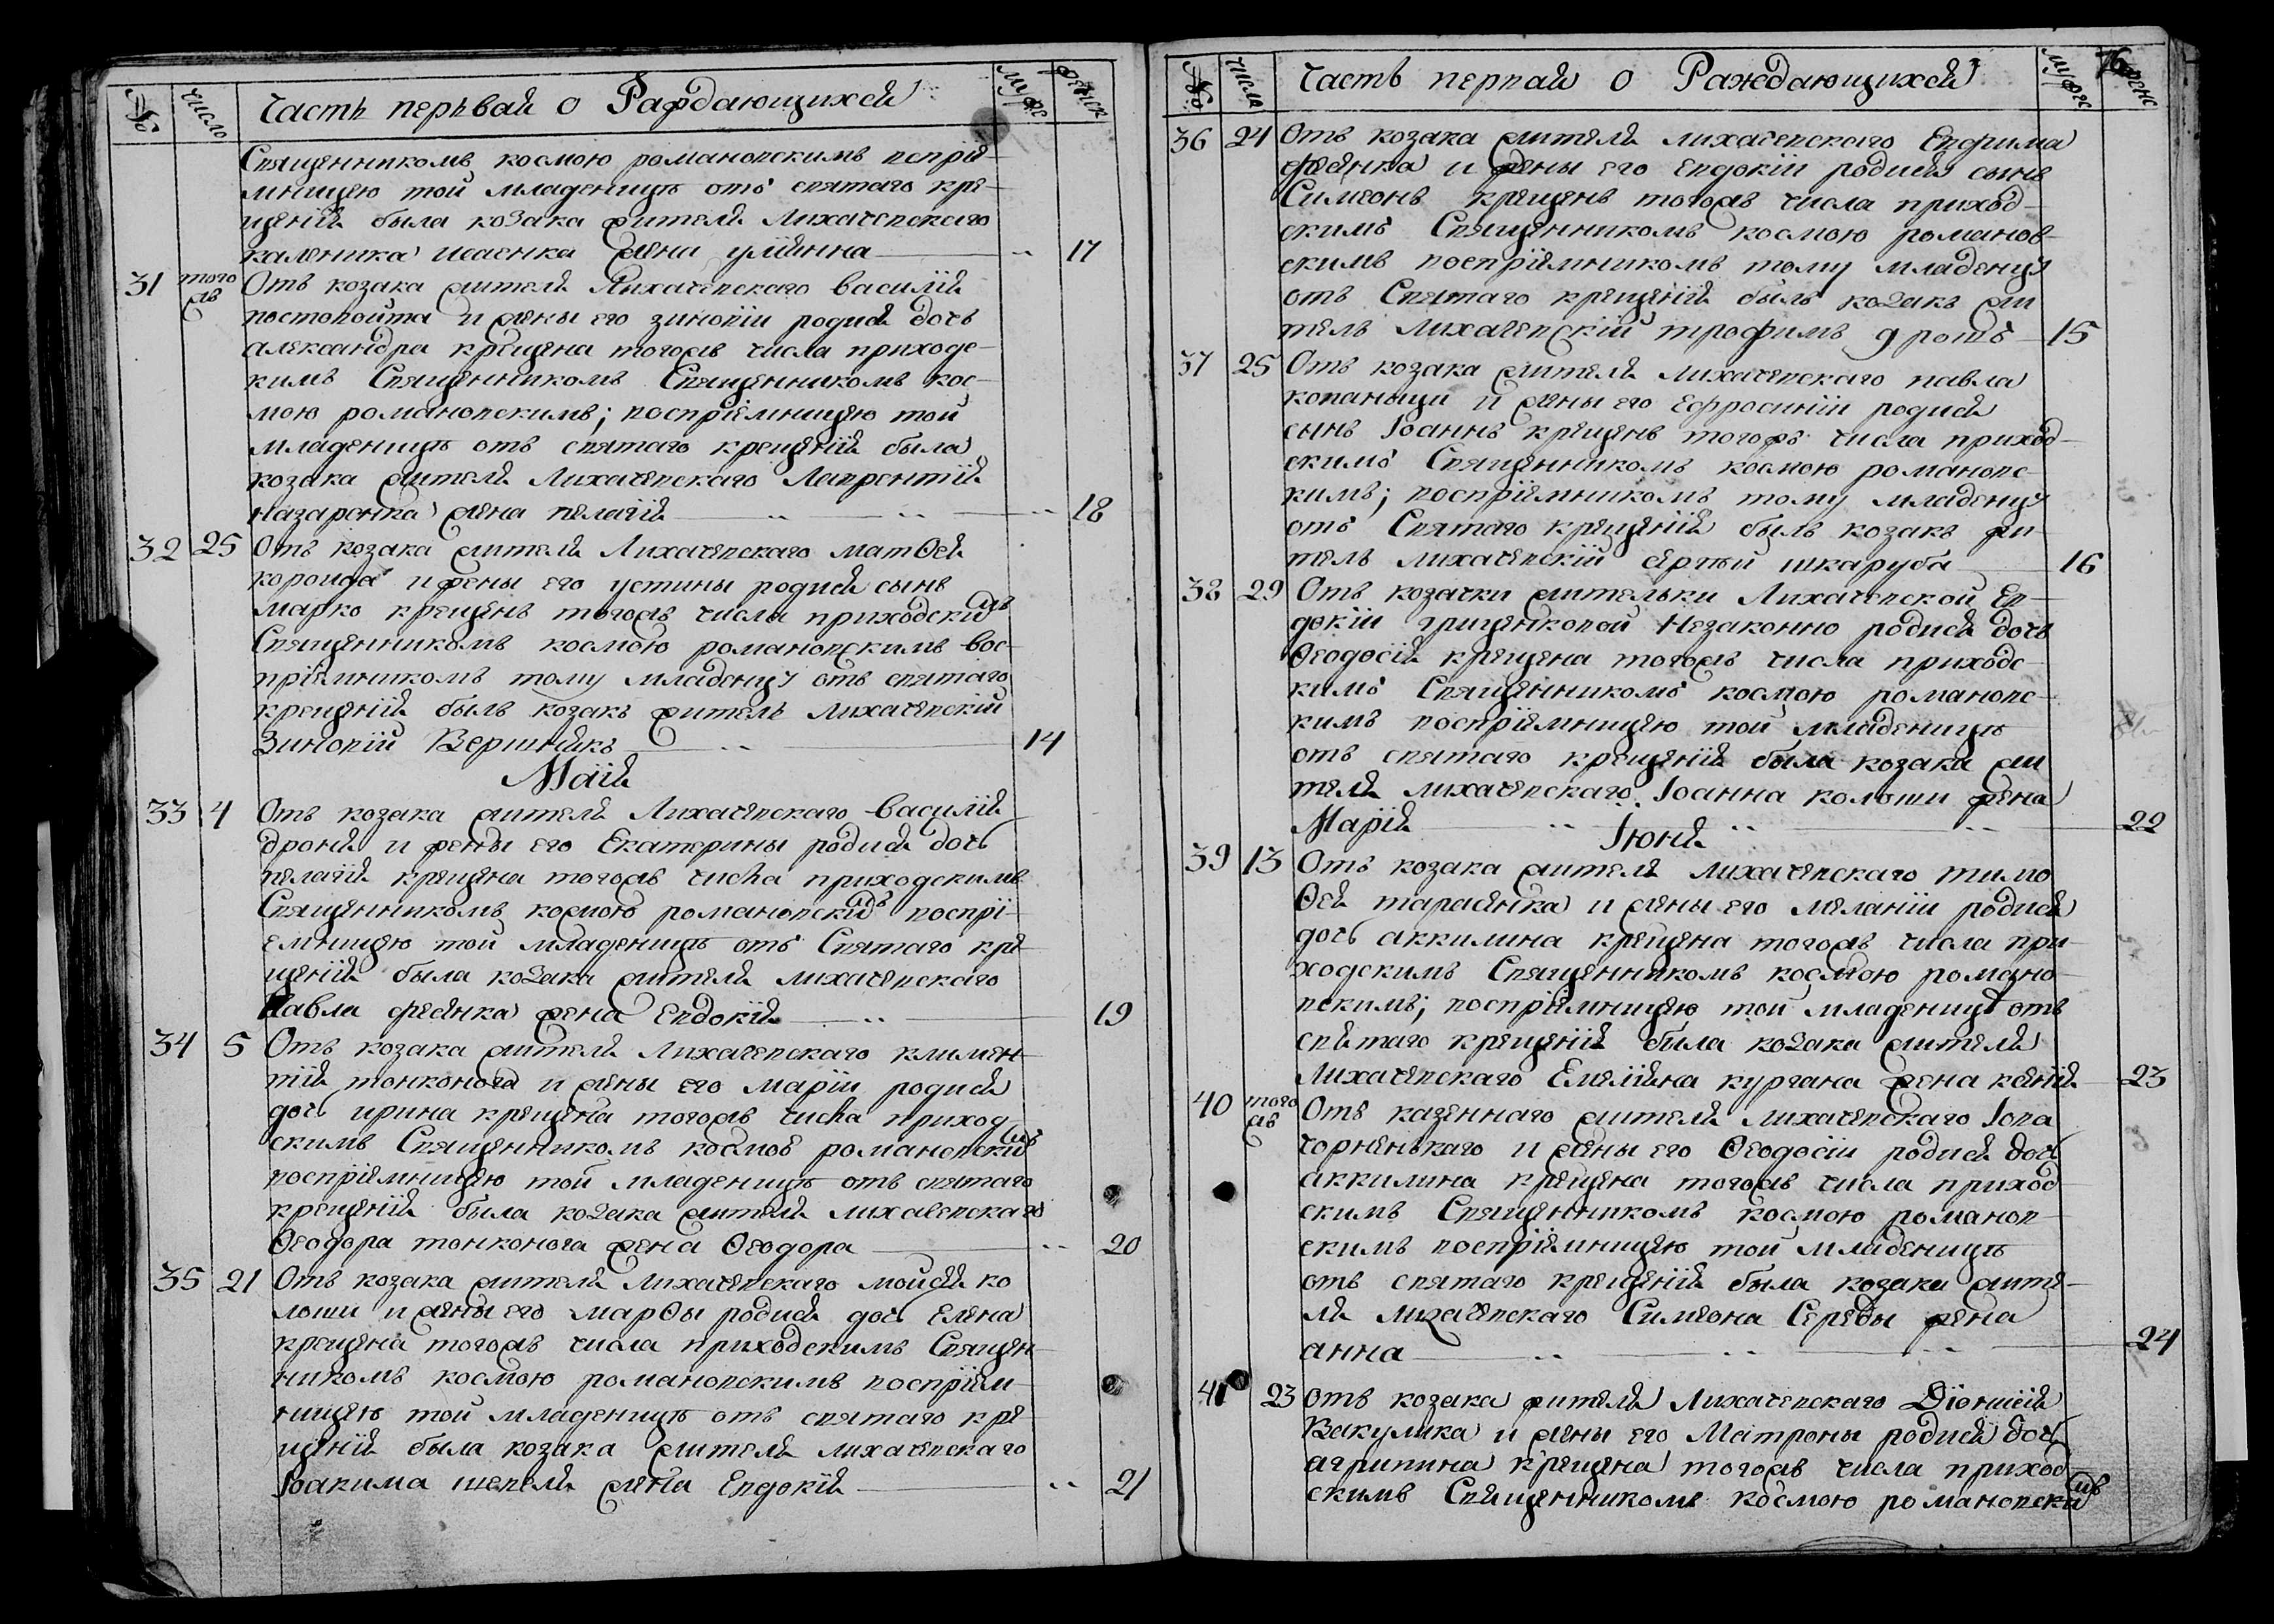 №
число
Часть перьвая о Раждающихся
муж
женск
Священникомъ космою романовскимъ воспрiе-
мницею той младеницѣ отъ святаго кре-
щенiя была козака жителя Лихачевскаго
каленика исаенка жена улiянна 17
31 того жъ Отъ козака жителя Лихачевскаго василiя
и жены его зиновiи родися дочь
александра крещена тогожъ числа приходс-
кимъ Священникомъ Священникомъ кос-
мою романовскимъ; воспрiемницею той
младеницѣ отъ святаго крещенiя была
козака жителя Лихачевскаго Лаврентiя
назаренка жена пелагiя 18
32 25 Отъ козака жителя Лихачевскаго матѳея
и жены его устины родися сынъ
марко крещенъ тогожъ числа приходскимъ
Священникомъ космою романовскимъ вос-
прiемникомъ тому младенцу отъ святаго
крещенiя былъ козакъ житель лихачевскiй
Зиновiй Вершникъ 14
Маiя
33 4 Отъ козака жителя Лихачевскаго василiя
дрони и жены его Екатерины родися дочь
пелагiя крещена тогожъ числа приходскимъ
Священникомъ космою романовскимъ воспрi-
емницею той младеницѣ отъ Святаго кре-
щенiя была козака жителя лихачевскаго
Павла фесенка жена Евдокiя 19
34 5 Отъ козака жителя Лихачевскаго климен-
тiя тонконога и жены его марiи родися
дочь ирина крещена тогожъ числа приход
скимъ Священникомъ космою романовскимъ
воспрiемницею той младеницѣ отъ святаго
крещенiя была козака жителя лихачевскаго
Ѳеодора тонконога жена Ѳеодора 20
35 21 Отъ козака жителя Лихачевскаго мойсея ко
лоши и жены его марѳы родися дочь Елена
крещена тогожъ числа приходскимъ Священ-
никомъ космою романовскимъ воспрiем-
ницею той младеницѣ отъ святаго кре
щенiя была козака жителя лихачевскаго
Iоакима шепеля жена Евдокiя 21
№
числа
Часть первая о Раждающихся
муже
женс
76
36 24 Отъ козака жителя лихачевскаго Евфима
фесенка и жены его Евдокiи родися сынъ
Симеонъ крещенъ тогожъ числа приход-
скимъ Священникомъ космою романов-
скимъ воспрiемникомъ тому младенцу
отъ Святаго крещенiя былъ козакъ жи
тель лихачевскiй трофимъ 15
37 25 Отъ козака жителя лихачевскаго павла
копаницы и жены его Ефросинiи родися
сынъ Iоаннъ крещенъ тогожъ числа приход-
скимъ Священникомъ космою романовс-
кимъ; воспрiемникомъ тому младенцу
отъ Святаго крещенiя былъ козакъ жи-
тель лихачевскiй сергiй шкаруба 16
38 29 Отъ козачки жительки Лихачевской Ев-
докiи грищенковой Незаконно родися дочь
Ѳеодосiя крещена тогожъ числа приходс-
кимъ Священникомъ космою романовс-
кимъ воспрiемницею той младеницѣ
отъ святаго крещенiя была козака жи
теля лихачевскаго Iоанна колоши жена
Марiя 22
Iюня
39 13 Отъ козака жителя лихачевскаго тимо
ѳея тарасенка и жены его меланiи родися
дочь аккилина крещена тогожъ числа при-
ходскимъ Священникомъ космою романо-
вскимъ; воспрiемницею той младеницѣ отъ
святаго крещенiя была козака жителя
лихачевскаго Емелiяна кургана жена ксенiя 23
40 того жъ Отъ казеннаго жителя лихачевскаго Iова
чорненькаго и жены его Ѳеодосiи родися дочь
аккилина крещена тогожъ числа приход
скимъ Священникомъ космою романов-
скимъ воспрiемницею той младеницѣ
отъ святаго крещенiя была козака жите-
ля лихачевскаго Симеона Середы жена
анна 24
41 23 отъ козака жителя Лихачевскаго Дiонисiя
Вакулика и жены его Матроны родися дочь
агрипина крещена тогожъ числа приход
скимъ Священникомъ космою романовскимъ